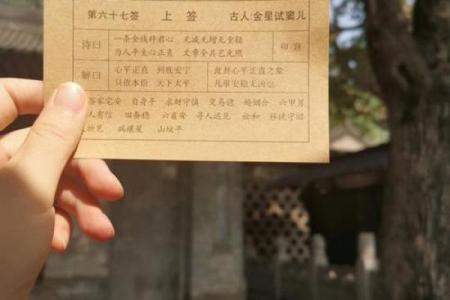 第六十七签 上签 古人:金星试窦儿
诗曰 一条金线秤君心 无减无增无重轻
为人平生心正直 文章全具艺光
解曰 心平正直 到底安宁
只依本份 天下太平
此卦心平正直之象
凡事安稳无凶也
家宅安 自身平 求财守慎 交易稳 婚姻合 六甲男
人有信 田蚕稳 六畜安 寻人远见 讼和 移徙守旧
物见 病禳星 山坟平